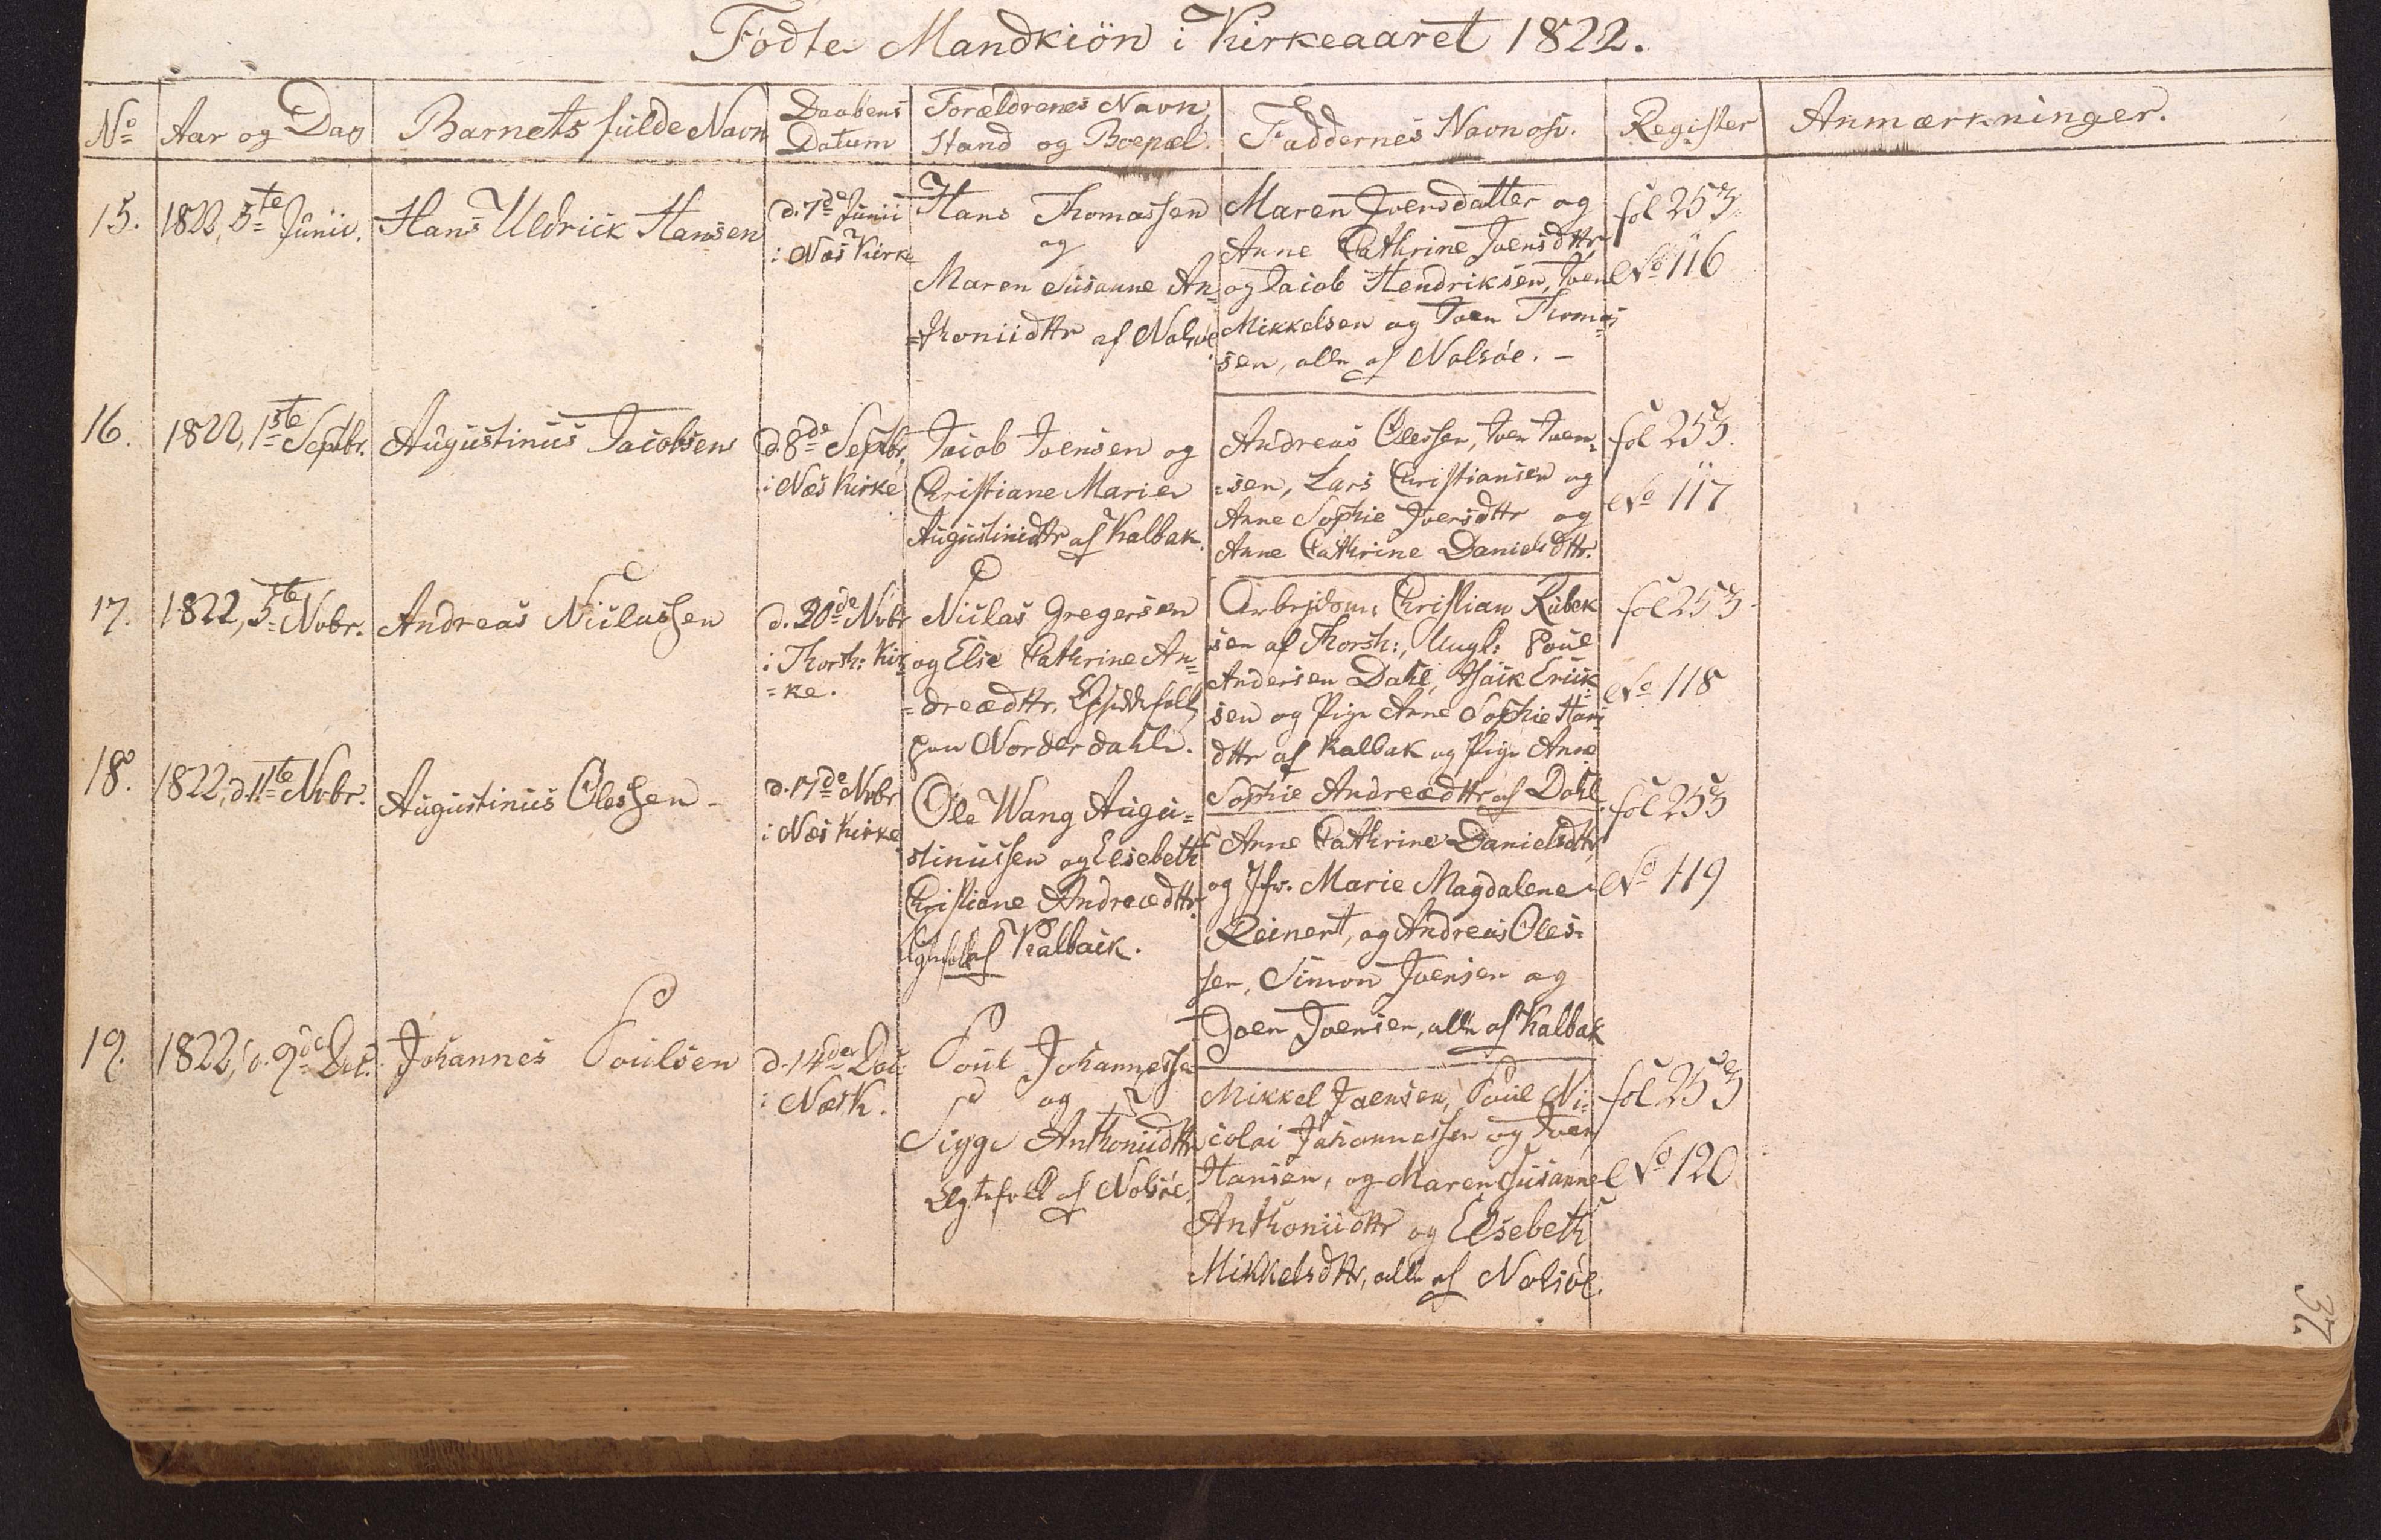 Fødte Mandkiön i Kirkeaaret 1822.
No Aar og Dag Barnets fulde Navn Daabens Datum Forældrenes Navn, Stand og Boepæl. Faddernes Navn osv. Register Anmærkninger.
15. 1822, 5te Junii. Hans Uldrick Hansen
d. 7de Junii
i Næs Kirke
Hans Thomassen
og
Maren Susanne An=
=thoniidttr af Nolsöe
Maren Joensdatter og
Anne Cathrine Joensdttr
og Jacob Hendriksen, Joen
Mikkelsen og Joen Thomas=
sen, alle af Nolsöe. –
fol 253.
No 116
16. 1822, 1ste Septbr. Augustinus Jacobsen
d. 8de Septbr,
i Næs Kirke
Jacob Joensen og
Christiane Marie
Augustinidttr af Kalbak.
Andreas Olessen, Joen Joen=
=sen, Lars Christiansen og
Anne Sophie Joensdttr og
Anne Cathrine Danielsdttr.
fol 253.
No 117
17. 1822, 5te Nvbr. Andreas Niclassen
d. 20de Nvbr
i Thorsh: Kir
=ke.
Niclas Gregersen
og Else Cathrine An=
=dreædttr,
Norderdahle.
Christian Rubek
sen af Thorsh:, Ungk: Poul
Andersen Dahl, Isaik Erick
sen og Pige Anne Sophie Hans
dttr af Kalbak og Pige Anne
Sophie Andreædttr af Dahl.
fol 253
No 118
18. 1822, d. 11te Nvbr. Augustinus Olessen –
d. 17de Nvbr
i Næs Kirke
Ole Wang Augu=
stinussen og Elsebeth
Christiane Andreædttr.
Egtefolk af Kalbaik.
Anne Cathrine Danielsdttr,
og Jfr. Marie Magdalene
Reinert, og Andreas Oles=
sen, Simon Joensen og
Joen Joensen, alle af Kalbak
fol 253
No 119
19. 1822, d. 9de Dec. Johannes Poulsen
d. 14de Dec.
i Næs K.
Poul Johannessen
og
Sigge Anthoniidttr
Egtefolk af Nolsöe.
Mikkel Joensen, Poul Ni=
colai Johannessen og Joen
Hansen, og Maren Susanne
Anthoniidttr og Elsebeth
Mikkelsdttr, alle af Nolsöe.
fol 253
No 120
37.